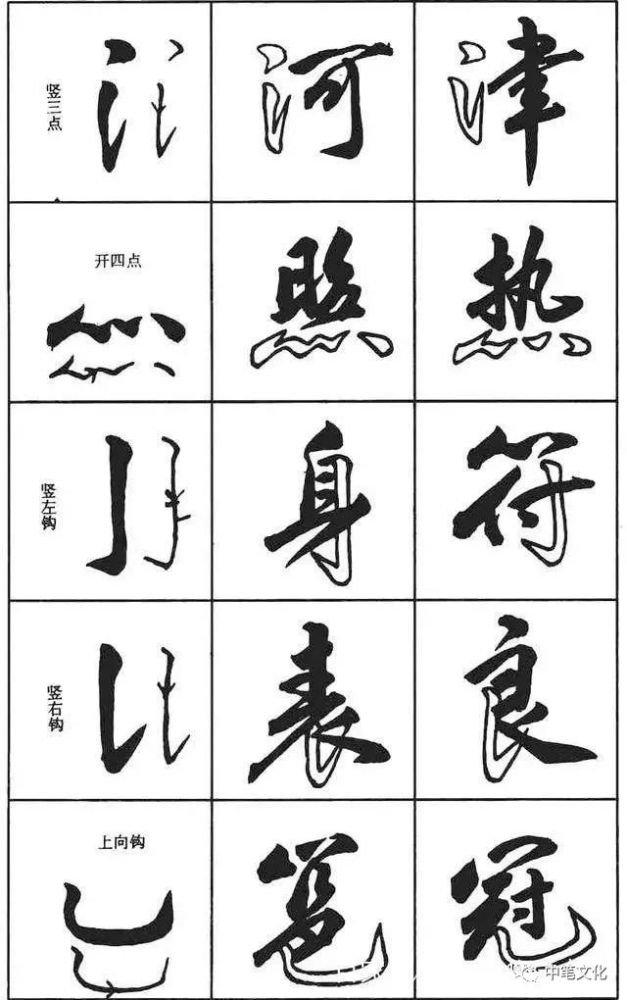 竖三点 河 津
开四点 照 热
竖左钩 身 符
竖右钩 表 良
上向钩 冠
中笔文化